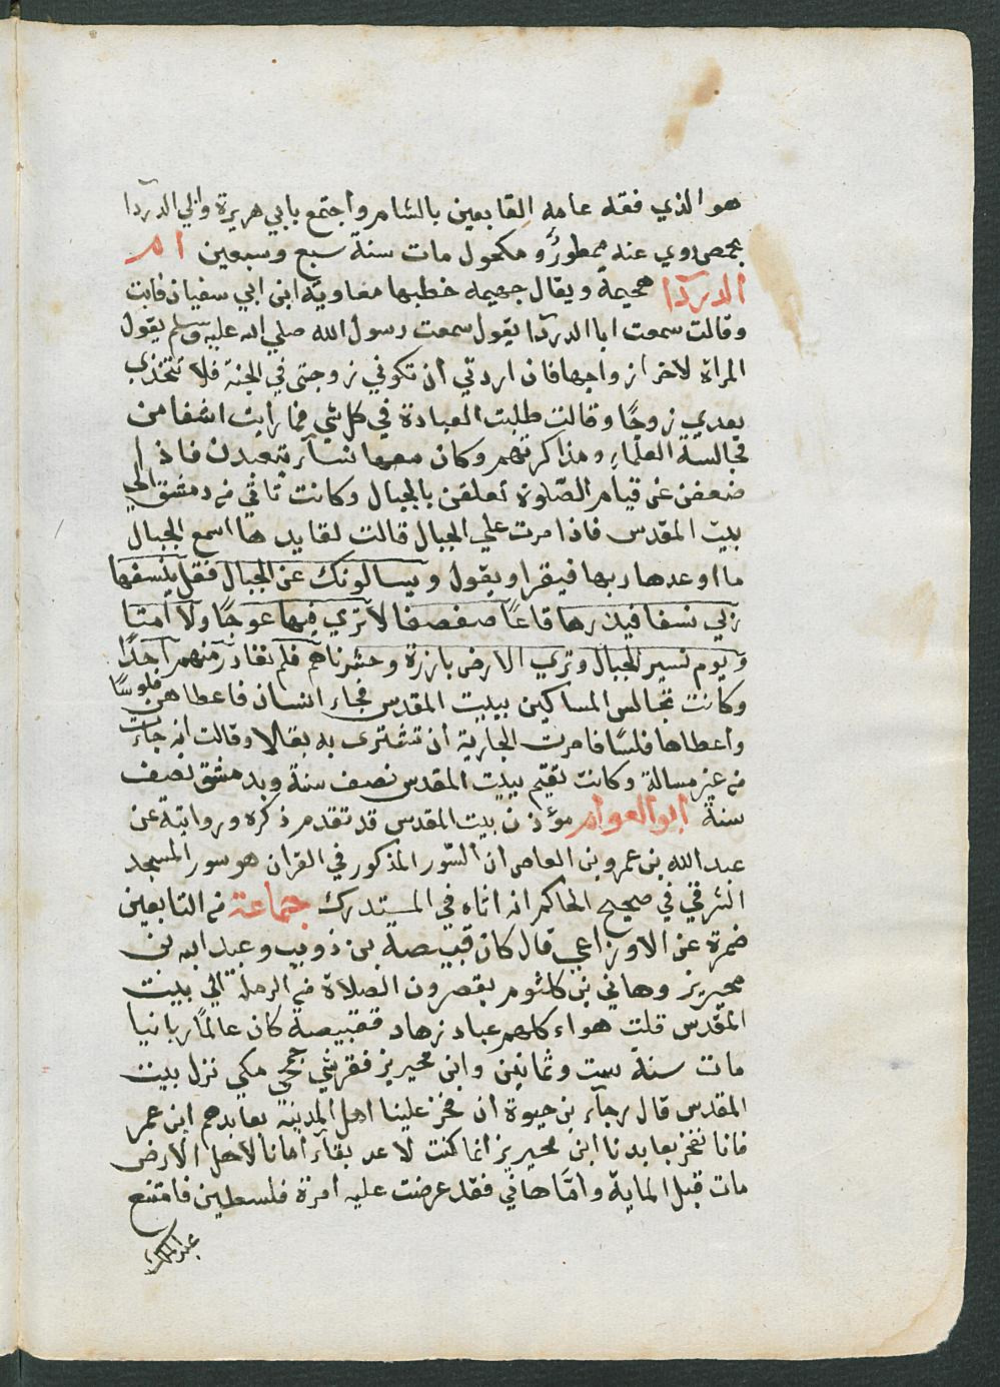 هو الذي فقه عامه التابعين بالشام واجتمع بابي هريرة وابي الدردآ
بحمص روي عنه ممطورٌ و مكحول مات سنة سبع وسبعين ام
الدردآ هجيمة ويقال جهيمه خطبها معاوية ابن ابي سفيان فابت
وقالت سمعت ابا الدردآ يقول سمعت رسول الله صلي الله عليه وسلم يقول
المراة لاخر ازواجها فان اردتي ان تكوني زوجتي في الجنة فلا تتخذي
بعدي زوجًا وقالت طلبت العبادة في كل شي فما رايت اشفا من
مجالسة العلماءِ ومذاكرتهم وكان معها نسآء يتعبدن فاذا
ضعفن عن قيام الصّلوة تعلقن بالحبال وكانت تاتي من دمشق الي
بيت المقدس فاذا مرت علي الجبال قالت لقايدها اسمع الجبال
ما اوعدها ربها فيقرا ويقول ويسالونك عن الجبال فقل ينسفها
ربي نسفا فيذرها قاعًا صفصفا لا تري فيها عوجًا ولا امتا
ويوم نسير الجبال وتري الارض بارزة وحشرناهم فلم نغادر منهم احدًا
وكانت تجالس المساكين ببيت المقدس فجاء انسان فاعطاهن فلوسًا
واعطاها فلسًا فامرت الجارية ان تشتري به بقالا وقالت انه جاءت
من غير مسالة وكانت تقيم ببيت المقدس نصف سنة وبدمشق نصف
سنة ابو العوام مؤذن بيت المقدس قد تقدم ذكره وروايته عن
عبد الله بن عمرو بن العاص ان السّور المذكور في القران هو سور المسجد
الشرقي في صحيح الحاكم انه اتاه في المستدرك جماعة من التابعين
ضمرة عن الاوزاعي قال كان قبيصة بن ذويب وعبد الله بن
محيريز وهاني بن كلثوم يقصرون الصلاة من الرملة الي بيت
المقدس قلت هواء كلهم عباد زهاد فقبيصة كان عالمًا ربانيا
مات سنة ست وثمانين وابن محيريز فقرشي جمحي مكي نزل بيت
المقدس قال رجآء بن حيوة ان فخز علينا اهل المدينة بعابدهم ابن عمر
فانا نفخز بعابدنا ابن محيريز انما كنت لاعد بقآءه امانا لاهل الارض
مات قبل الماية وامّا هاني فقد عرضت عليه امرة فلسطين فامتنع
عبد الملك